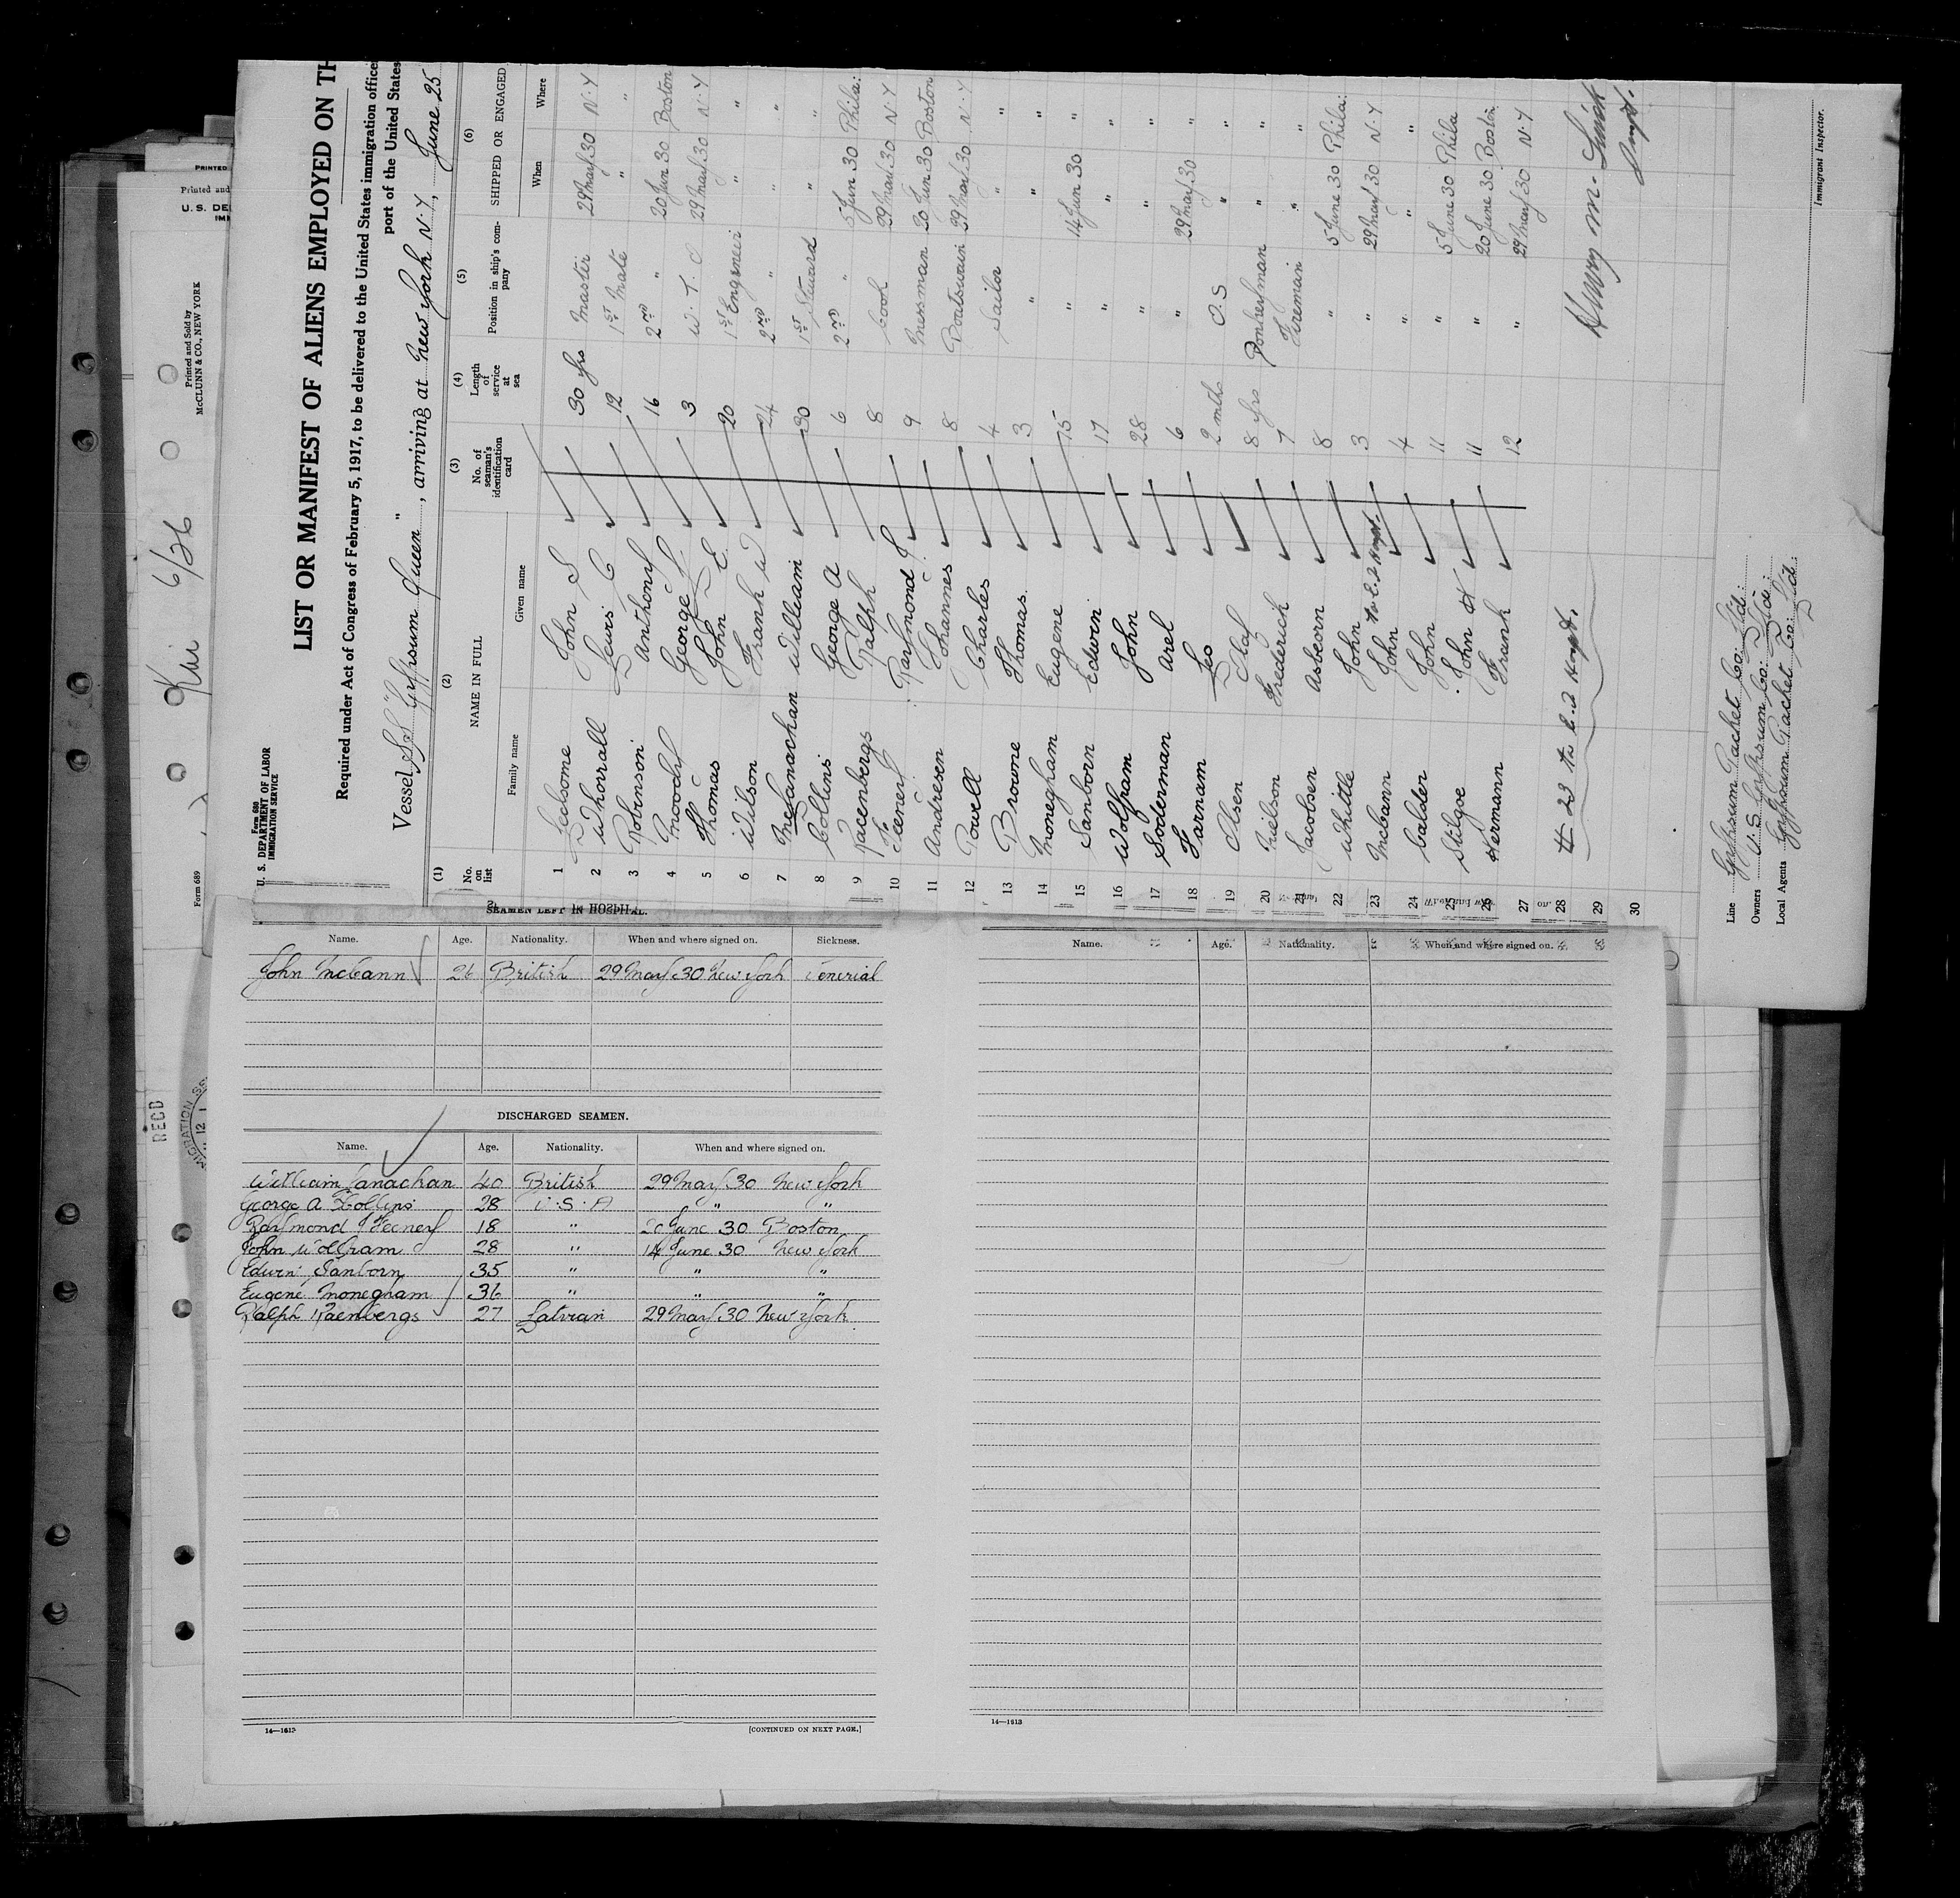 Form 680
U. S. DEPARTMENT OF LABOR
IMMIGRATION SERVICE
LIST OR MANIFEST OF ALIENS EMPLOYED ON TH
Required under Act of Congress of February 5, 1917, to be delivered to the United States immigration office
port of the United States
Vessel SS "Gypsum Queen", arriving at New York N.Y., June 25
(1) (2) (3) (4) (5) (6)
No. on list NAME IN FULL No. of seaman's identification card Length of service at sea Position in ship's company SHIPPED OR ENGAGED
Family name Given name When Where
1 John S 30 yrs Master 29 May 30 N.Y
2 Whorrall Lewis C 12 1st Mate " "
3 Robinson Anthony 16 2nd " 20 Jun 30 Boston
4 Moody George 3 W. T. O 29 May 30 N.Y
5 Thomas John E. 20 1st Engineer " "
6 Wilson Frank W 24 2nd " " "
7 McLanachan William 30 1st Steward " "
8 Collins George A 6 2nd " 5 Jun 30 Phila:
9 Racenbergs Ralph 8 Cook 29 May 30 N.Y
10 Feeney Raymond J. 9 Messman 20 Jun 30 Boston
11 Andresen Johannes 8 Boatswain 29 May 30 N.Y
12 Powell Charles 4 Sailor " "
13 Browne Thomas 3 " " "
14 Monegham Eugene 15 " 14 Jun 30 "
15 Sanborn Edwin 17 " " "
16 Wolfram John 28 " " "
17 Soderman Axel 6 " 29 May 30 "
18 Farnam Leo 2 mths O.S " "
19 Olsen Olaf 8 yrs Donkeyman " "
20 Nielson Frederick 7 Fireman " "
21 Jacobsen Asbeorn 8 " 5 June 30 Phila:
22 Whittle John 3 " 29 May 30 N.Y
23 McCann John 4 " " "
24 Calder John 11 " 5 June 30 Phila
25 Stilgoe John H 11 " 20 June 30 Boston
26 Hermann Frank 12 " 29 May 30 N.Y
27
28
29
30
Line Gypsum Packet Co: Ltd:
Owners U.S. Gypsum Co:
Local Agents Gypsum Packet Co: Ltd:
Immigrant Inspector.
Form 689
Printed and Sold by
McCLUNN & CO., NEW YORK
6/26
RECD
SEAMEN LEFT IN HOSPITAL.
Name. Age. Nationality. When and where signed on. Sickness.
John McCann 26 British 29 May 30 New York Venerial
DISCHARGED SEAMEN.
Name. Age. Nationality. When and where signed on.
William Lanachan 40 British 29 May 30 New York
George A Collins 28 U.S.A " "
Raymond J Feeney 18 " 20 June 30 Boston
John Wolfram 28 " 14 June 30 New York
Edwin Sanborn 35 " " "
Eugene Monegham 36 " " "
Ralph Racenbergs 27 Latvian 29 May 30 New York
14—1613
[CONTINUED ON NEXT PAGE.]
Name. Age. Nationality. When and where signed on.
14—1613